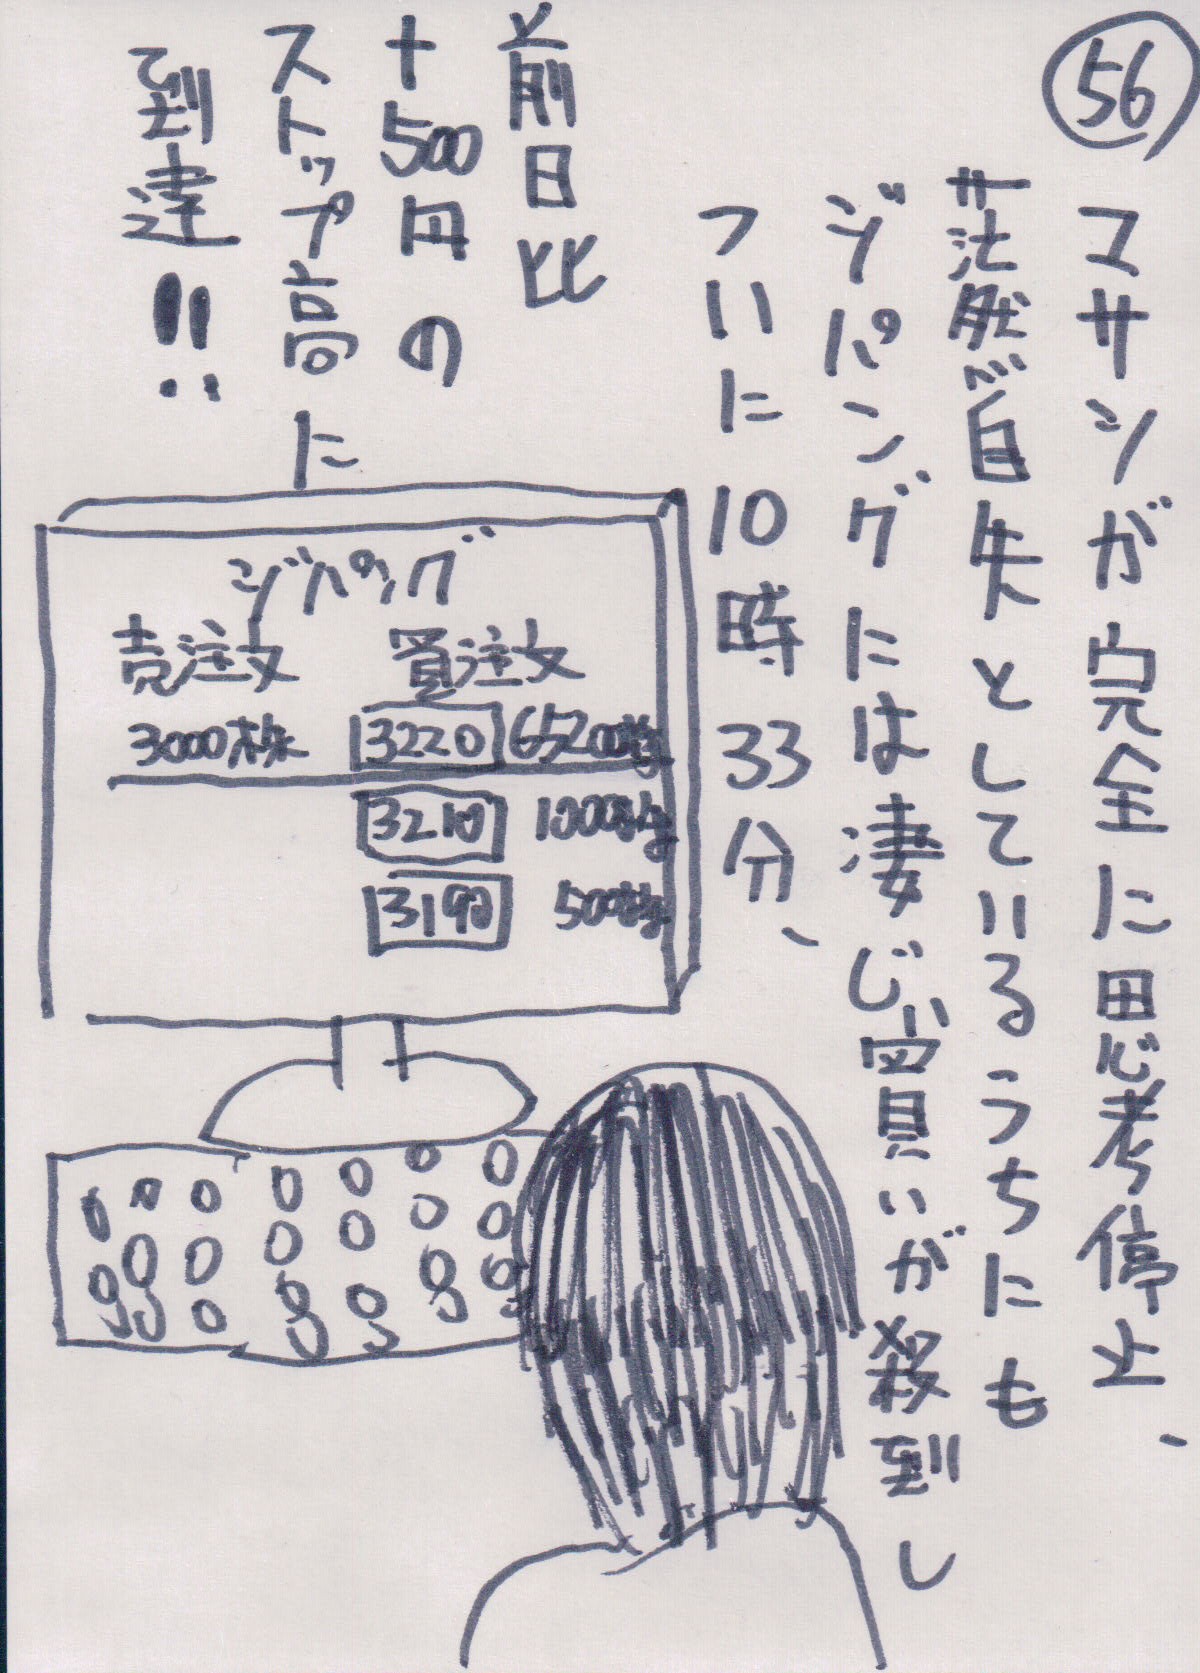 56
マサシが完全に思考停止、
茫然自失としているうちにも
ジパングには凄じい買いが殺到し
ついに10時33分、
前日比
+500円の
ストップ高に
到達!!
ジパング
売注文 買注文
3000株 3220 65200株
3210 1000株
3190 500株